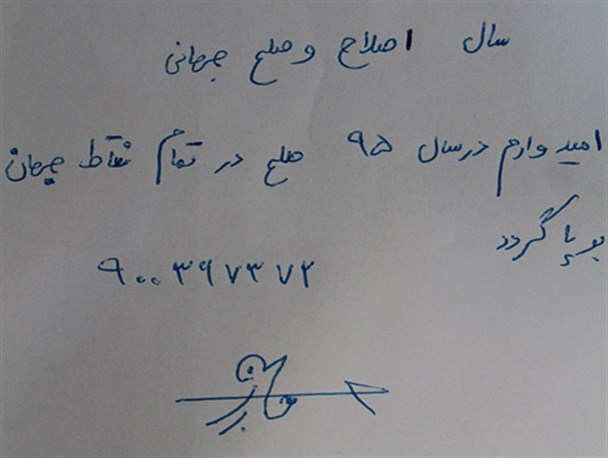 سال اصلاح و صلح جهانی
امیدوارم درسال ۹۵ صلح در تمام نقاط جهان
برپا گردد
۹۰۰۳۹۷۳۷۲